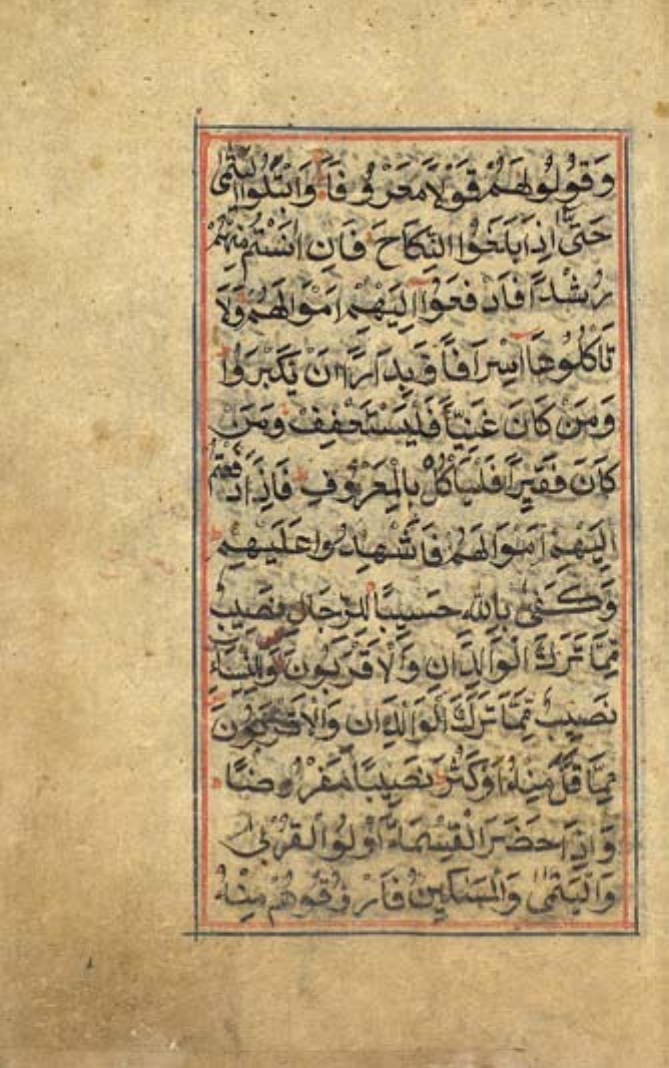 وَقُولُوا لَهُمْ قَوْلًا مَعْرُوفًا وَابْتَلُوا الْيَتٰمٰى
حَتّٰى اِذَا بَلَغُوا النِّكَاحَ فَاِنْ اٰنَسْتُمْ مِنْهُمْ
رُشْدًا فَادْفَعُوا اِلَيْهِمْ اَمْوَالَهُمْ وَلَا
تَاْكُلُوهَا اِسْرَافًا وَبِدَارًا اَنْ يَكْبَرُوا
وَمَنْ كَانَ غَنِيًّا فَلْيَسْتَعْفِفْ وَمَنْ
كَانَ فَقِيرًا فَلْيَاْكُلْ بِالْمَعْرُوفِ فَاِذَا دَفَعْتُمْ
اِلَيْهِمْ اَمْوَالَهُمْ فَاَشْهِدُوا عَلَيْهِمْ
وَكَفٰى بِاللّٰهِ حَسِيبًا لِلرِّجَالِ نَصِيبٌ
مِمَّا تَرَكَ الْوَالِدَانِ وَالْاَقْرَبُونَ وَلِلنِّسَاءِ
نَصِيبٌ مِمَّا تَرَكَ الْوَالِدَانِ وَالْاَقْرَبُونَ
مِمَّا قَلَّ مِنْهُ اَوْ كَثُرَ نَصِيبًا مَفْرُوضًا
وَاِذَا حَضَرَ الْقِسْمَةَ اُولُوا الْقُرْبٰى
وَالْيَتٰمٰى وَالْمَسٰكِينُ فَارْزُقُوهُمْ مِنْهُ